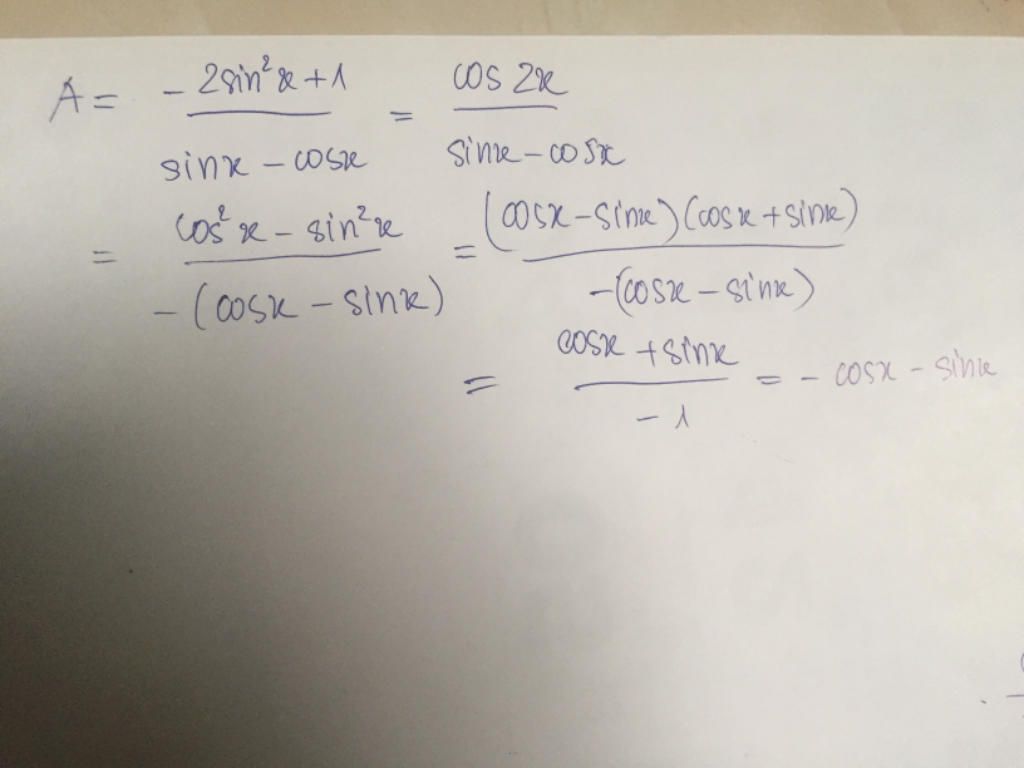 A = (- 2sin²x + 1)/(sinx - cosx) = (cos 2x)/(sinx - cosx)
= (cos²x - sin²x)/(-(cosx - sinx)) = ((cosx - sinx)(cosx + sinx))/(-(cosx - sinx))
= (cosx + sinx)/(-1) = - cosx - sinx